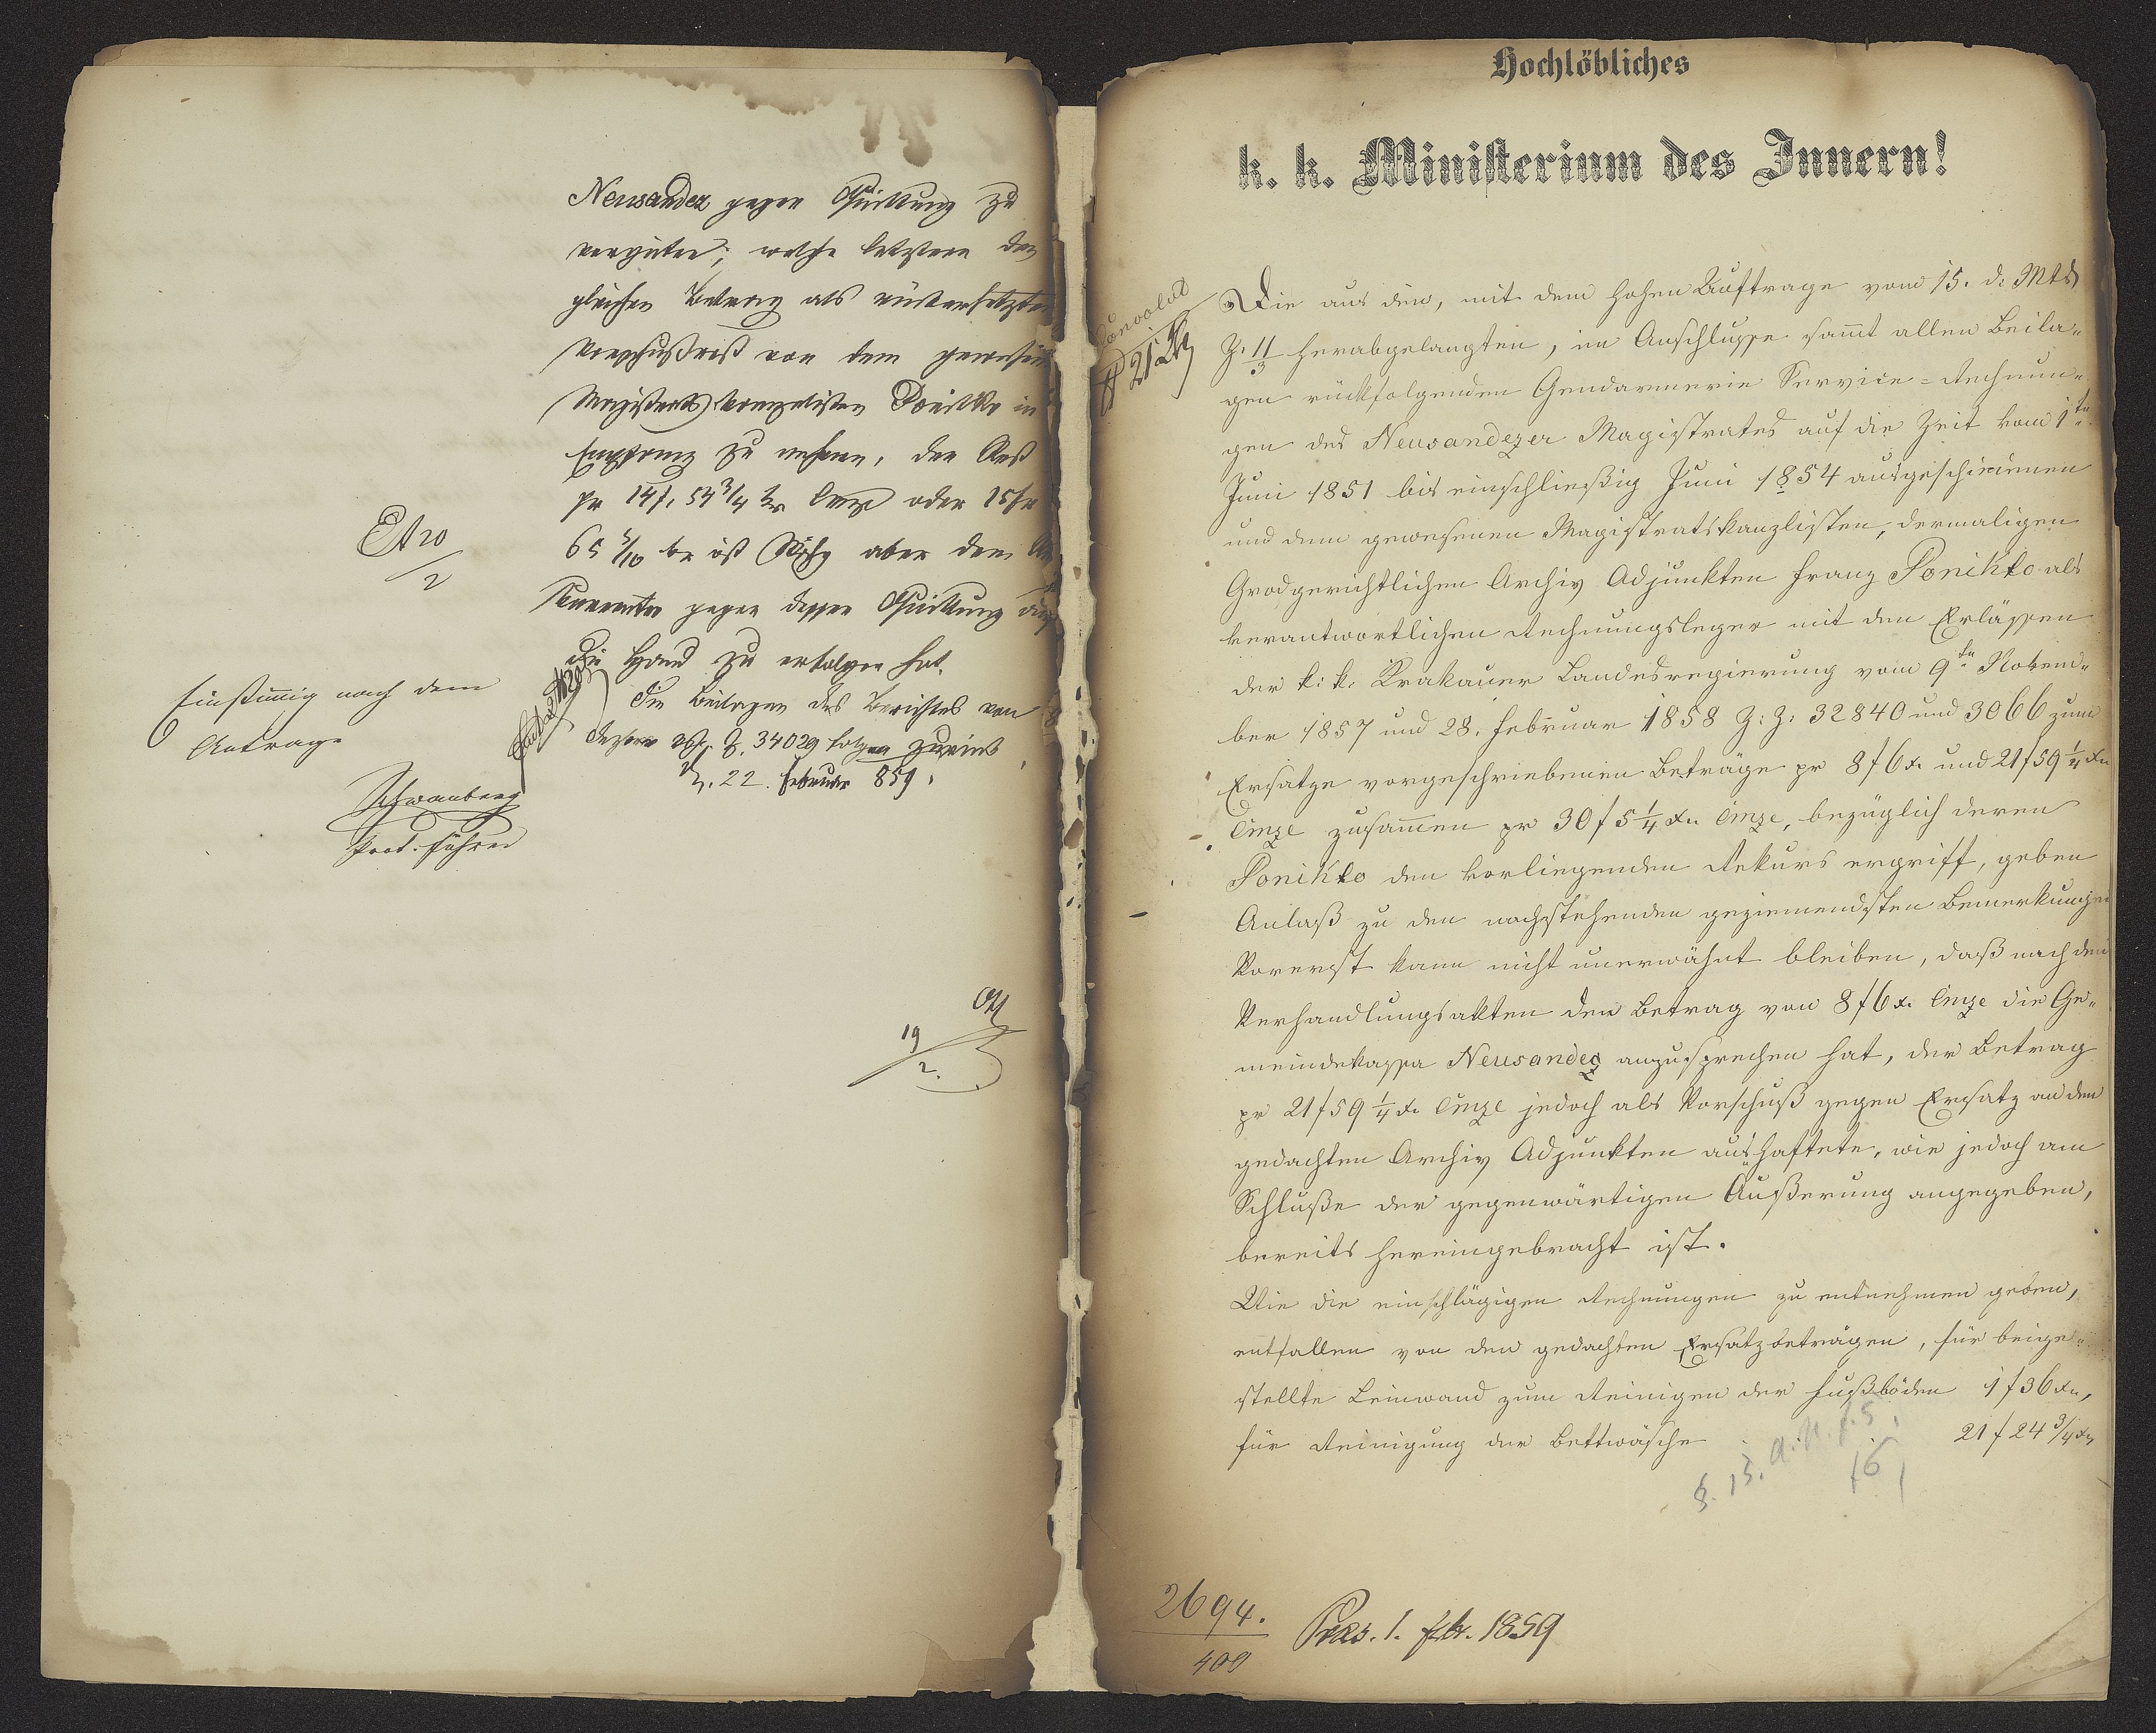 Neusandez gegen Quittung zu
vergüten; welche letztere den
gleichen Betrag als
Vorschußrest von dem gewesen
Magistrats Kanzelisten Ponikło in
Empfang zu nehmen, der Rest
pr 14f. 54 3/4 xr Cmze oder 15 fr
65 5/10 kr öst Whg aber dem
gegen dessen Quittung
die Hand zu erfolgen hat.
Die Beilagen des Berichtes vom
Z. 34029 folgen zurück
W. 22. Februar 859.
20
2
Einstimmig nach dem
Antrage
Schwanberg
Prot. Führer
19
2.
Hochlöbliches
k. k. Ministerium des Innern!
Die aus den, mit dem hohen Auftrage vom 15. d. Mts
Z. 11/3 herabgelangten, im Anschluße samt allen Beila-
gen rückfolgenden Gendarmerie Service-Rechnun-
gen des Neusandezer Magistrates auf die Zeit vom 1ten
Juni 1851 bis einschließig Juni 1854 ausgeschiedenen
und dem gewesenen Magistratskanzlisten, dermaligen
Grodgerichtlichen Archiv Adjunkten Franz Ponikło als
verantwortlichen Rechnungsleger mit den Erläßen
der k. k. Krakauer Landesregierung vom 9ten Novem-
ber 1857 und 28. Februar 1858 Z. Z. 32840 und 3066 zum
Ersatze vorgeschriebenen Beträge pr 8f 6x. und 21f 59 1/4 xr
Cmze zusammen pr 30f 5 1/4 xr Cmze, bezüglich deren
Ponikło den vorliegenden Rekurs ergriff, geben
Anlaß zu den nachstehenden geziemendsten Bemerkungen
Vorerst kann nicht unerwähnt bleiben, daß nach den
Verhandlungsakten den Betrag von 8f 6x. Cmze die Ge-
meindekassa Neusandez anzusprechen hat, der Betrag
pr 21f 59 1/4 x. Cmze jedoch als Vorschuß gegen Ersatz an den
gedachten Archiv Adjunkten aushaftete, wie jedoch am
Schluße der gegenwärtigen Äußerung angegeben,
bereits hereingebracht ist.
Wie die einschlägigen Rechnungen zu entnehmen geben,
entfallen von den gedachten Ersatzbeträgen, für beige-
stellte Leinwand zum Reinigen der Fußböden 1f 36 xr,
für Reinigung der Bettwäsche . . . 21f 24 3/4 xr
2694.
409
Präs. 1. Feb. 1859